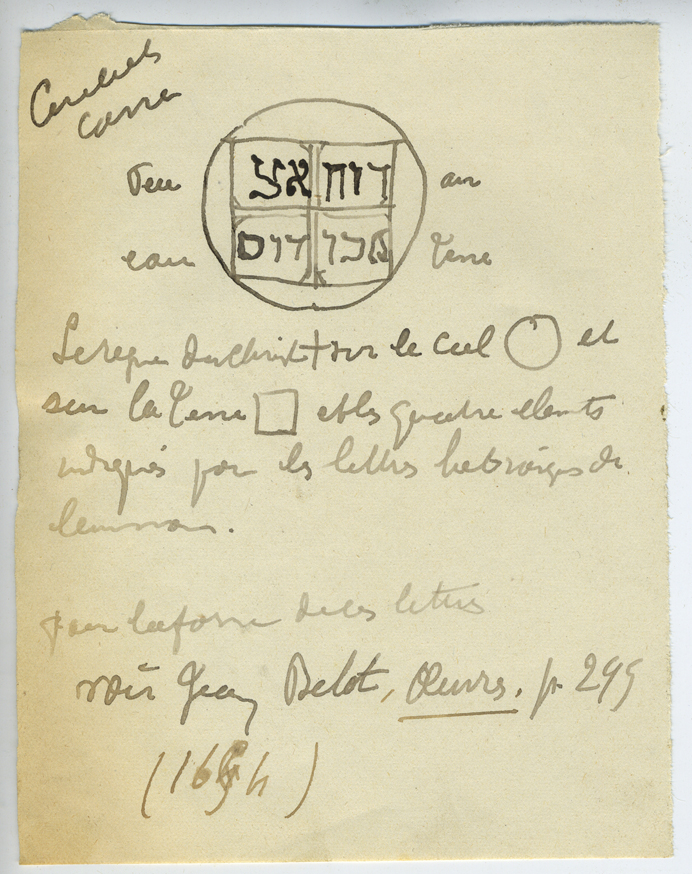 Cercle et
carré
Feu רוח air
eau Terre
Le règne du Christ + sur le ciel et
sur la Terre et les quatre elements
indiqués par les lettres hebraiques de
leurs noms.
pour la forme de ces lettres
voir Jean Belot, Œuvres, p. 295
(1654)